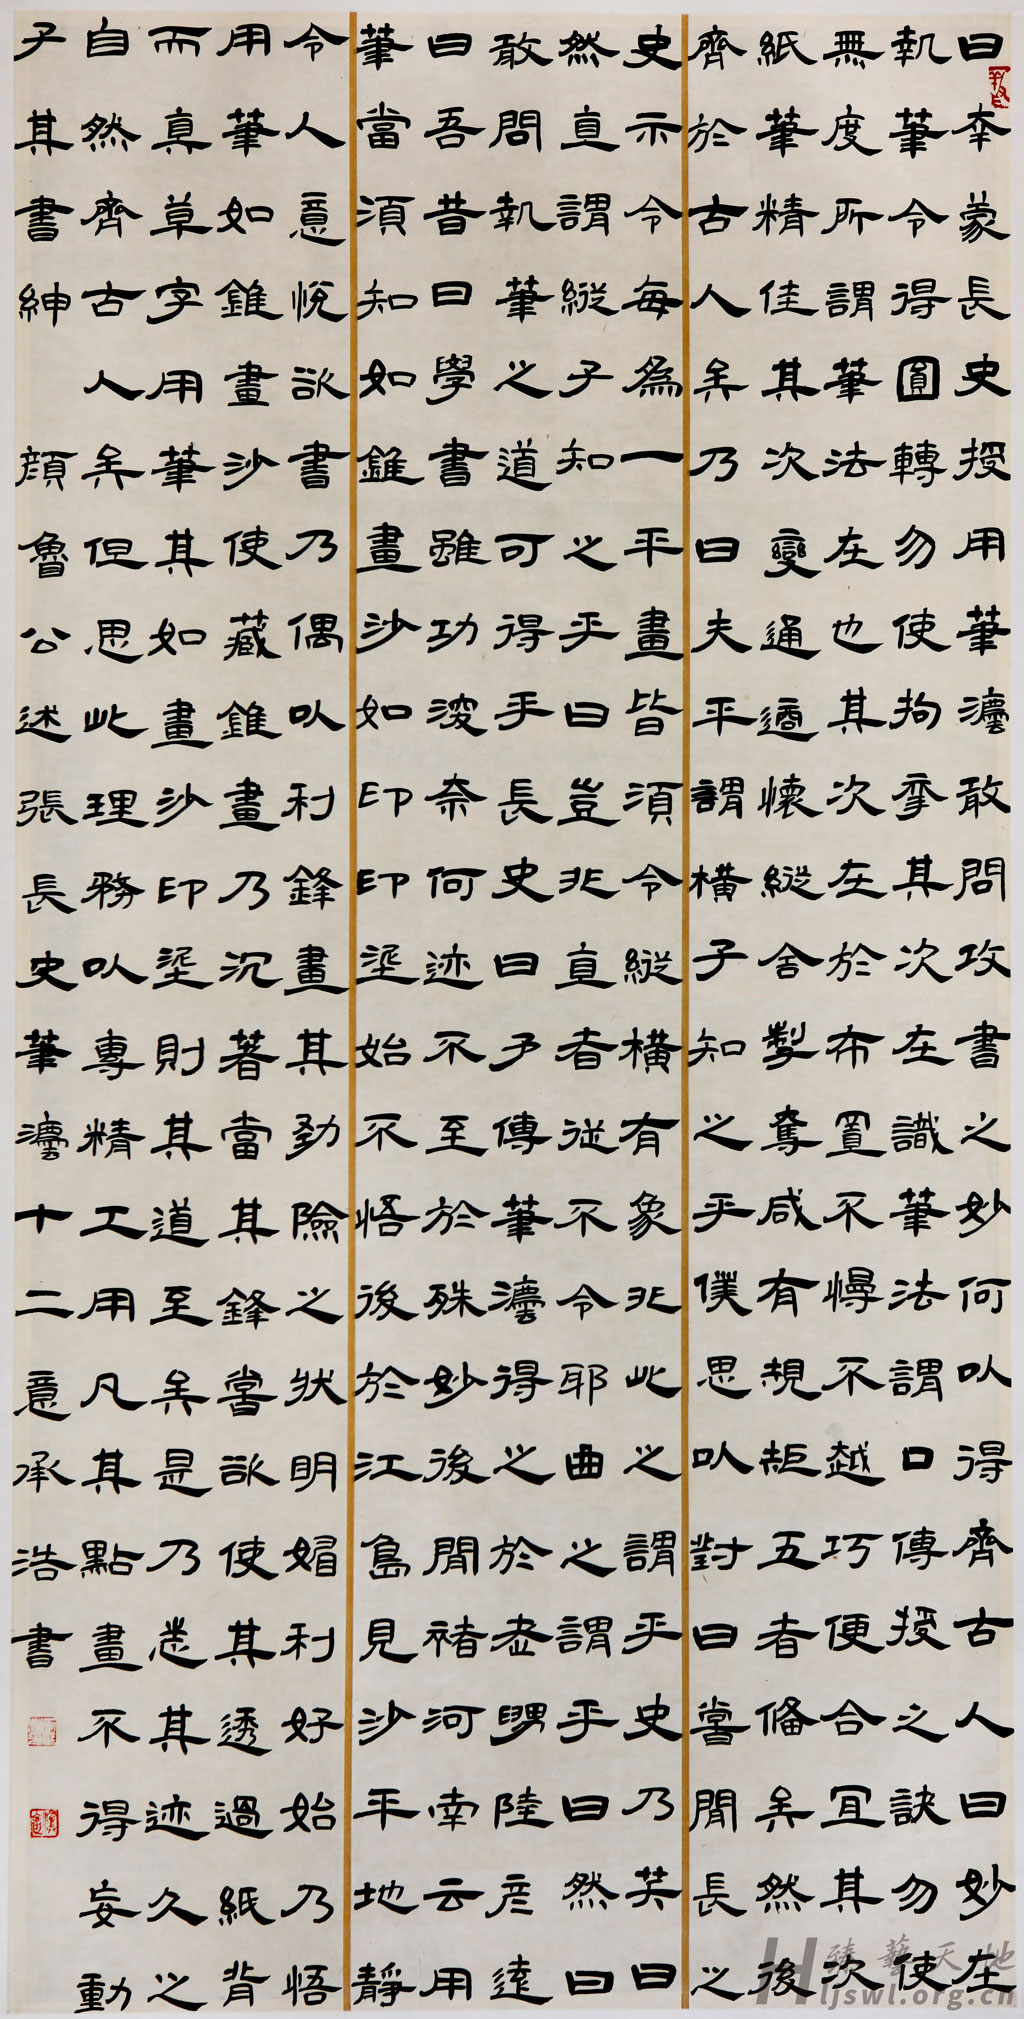 曰幸蒙長史授用筆灋敢問攻書之妙何以得齊古人曰妙在
執筆令得圓轉勿使拘攣其次在識筆法謂口傳授之訣勿使
無度所謂筆法在也其次在於布置不慢不越巧便合宜其次
紙筆精佳其次變通適懷縱舍掣奪咸有規矩五者備矣然後
齊於古人矣乃曰夫平謂橫子知之乎僕思以對曰嘗聞長之
史示令每為一平畫皆須令縱橫有象非此之謂乎史乃笑曰
然直謂縱子知之乎曰豈非直者從不令耶曲之謂乎曰然曰
敢問執筆之道可得乎長史曰予傳筆灋得之於老舅陸彥遠
曰吾昔日學書雖功深奈何迹不至於殊妙後聞褚河南云用
筆當須知如錐畫沙如印印埿始不悟後於江島見沙平地靜
令人意悅欲書乃偶以利鋒畫其勁險之狀明媚利好始乃悟
用筆如錐畫沙使藏錐畫乃沉著當其鋒嘗欲使其透過紙背
而真草字用筆其如畫沙印埿則其道至矣是乃悉其迹久之
自然齊古人矣但思此理務以專精工用凡其點畫不得妄動
子其書紳 顏魯公述張長史筆灋十二意承浩書
臻藝天地
ljswl.org.cn